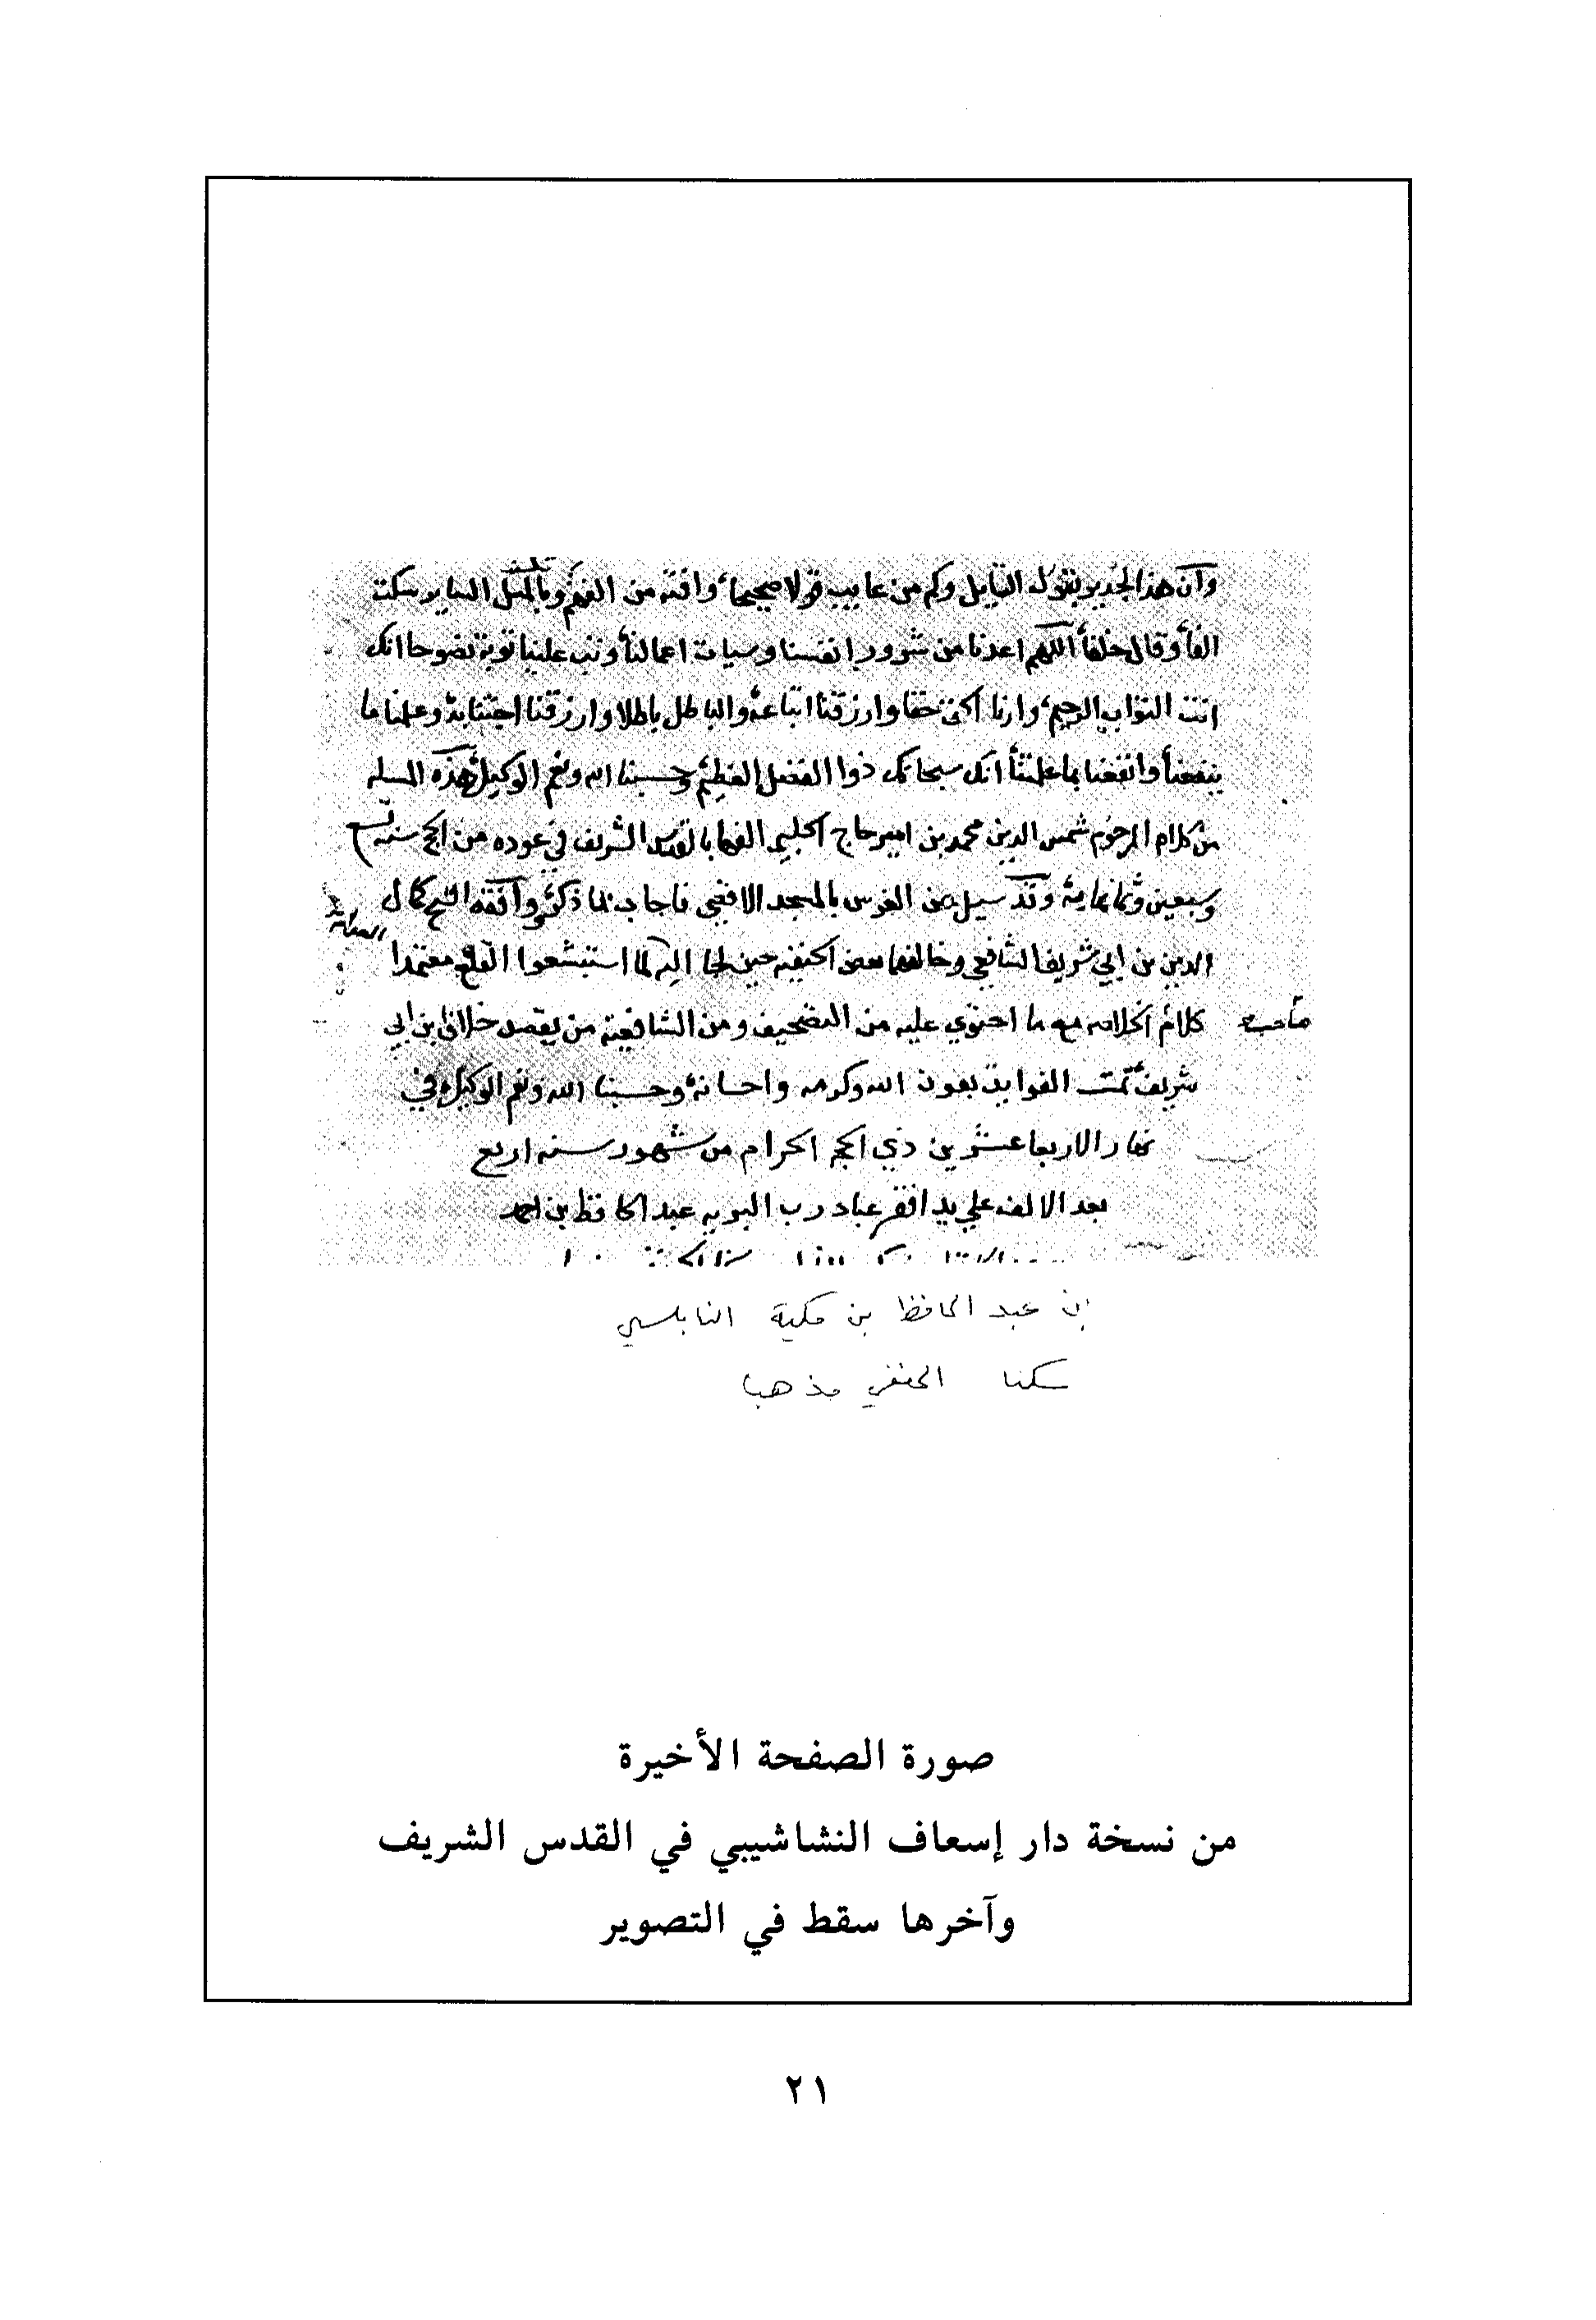 وان هذا لجدير بقول القايل وكم من عايب قولا صحيحا وافته من الفهم وبالمثل الساير سكت
الفا وقال خلفا اللهم اعذنا من شرور انفسنا وسيات اعمالنا وتب علينا توبة نصوحا انك
انت التواب الرحيم وارنا الحق حقا وارزقنا اتباعه والباطل باطلا وارزقنا اجتنابه وعلمنا ما
ينفعنا وانفعنا بما علمتنا انك سبحانك ذوا الفضل العظيم وحسبنا الله ونعم الوكيل هذه المسله
من كلام المرحوم شمس الدين محمد بن امير حاج الحلبي الفها بالقدس الشريف في عوده من الحج سنه تسع
وسبعين وثمانماية وقد سيل عن الفرس بالمسجد الاقصى فاجاب بما ذكر ووافقه الشيخ كمال
الدين بن ابي شريف الشافعي وخالفهما بعض الحنفيه حين لجا اليه لما استبشعوا القلع معتمدا
صاحب كلام الخلاصه مع ما احتوي عليه من التصحيف ومن الشافعية من يقصد خلاف ابن ابي
شريف تمت الفوايد بعون الله وكرمه واحسانه وحسبنا الله ونعم الوكيل في
نهار الاربعا عشرين ذي الحجه الحرام من شهور سنه اربع
بعد الالف علي يد افقر عباد رب البريه عبد الحافظ بن احمد
بن عبد الحافظ بن مكية النابلسي
سكنا الحنفي مذهبا
صورة الصفحة الأخيرة
من نسخة دار إسعاف النشاشيبي في القدس الشريف
وآخرها سقط في التصوير
٢١